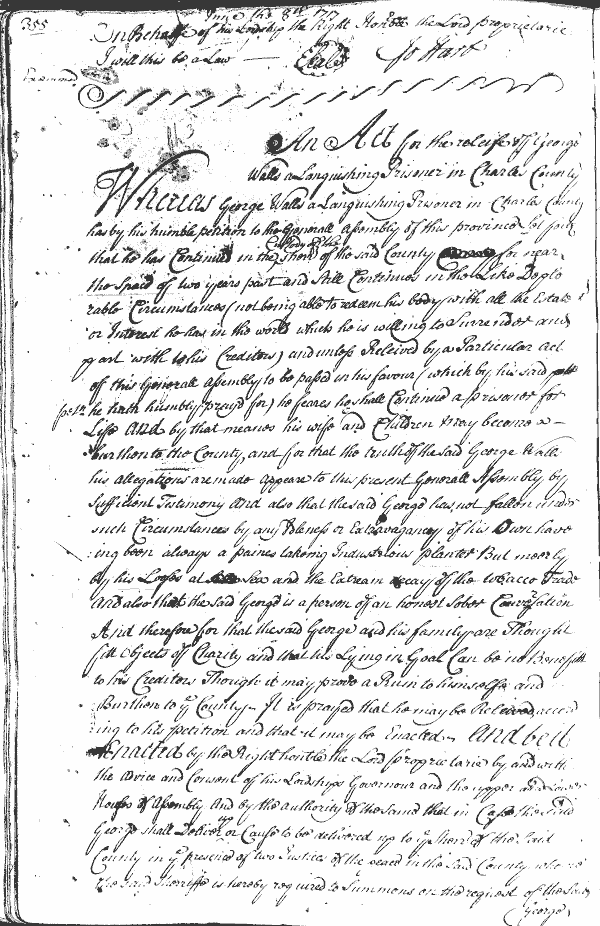 355
June the 8th 1717
On Behalfe of his Lordship the Right Honoble the Lord proprietarie
I will this be a Law
Seale
Jo Hart
Examined
An Act for the releife of George
Walls a Languishing Prisoner in Charles County
Whereas George Walls a Languishing Prisoner in Charles County
has by his humble petition to the Generall Assembly of this province Set forth
that he has Continued in the Custody of the Sherif of the said County for near
the Spaice of two years past and Still Continues in the Like Deplo
rable Circumstances (not being able to redeem his body with all the Estate
or Interest he has in the world which he is willing to Surrender and
part with to his Creditors) and unless Releived by a Particular act
of this Generall Assembly to be passd in his favour (which by his said
petn he hath humbly prayd for) he feares he shall Continued a prisoner for
Life And by that meanes his wife and Children may become a
burthen to the County, and for that the truth of the said George Walls
his allegations are made appeare to this present Generall Assembly by
Sufficient Testimony And also that the said George has not fallen under
such Circumstances by any Idleness or Extravagancy of his Own have
ing been always a paines takeing Industrious planter But meerly
by his Losses at Sea and the Extream decay of the tobacco Trade
and also that the said George is a person of an honest Sober Conversation
And therefore for that the said George and his family are Thought
fitt Objects of Charity and that his Lying in Goal Can be no Benefitt
to his Creditors Though it may prove a Ruin to himselfe and
Burthen to ye County It is prayed that he may be Releived accord
ing to his petition and that it may be Enacted And be it
Enacted by the Right honble the Lord proprietarie by and with
the advice and Consent of his Lordships Governour and the upper and Lower
Houses of Assembly And by the authority of the Same that in Case the Said
George shall Deliver up or Cause to be delivered up to ye Sherif of the Said
County in ye presence of two Justices of the peace in the Said County who
the Said Sherriffe is hereby required to Summons on the request of the Said
George